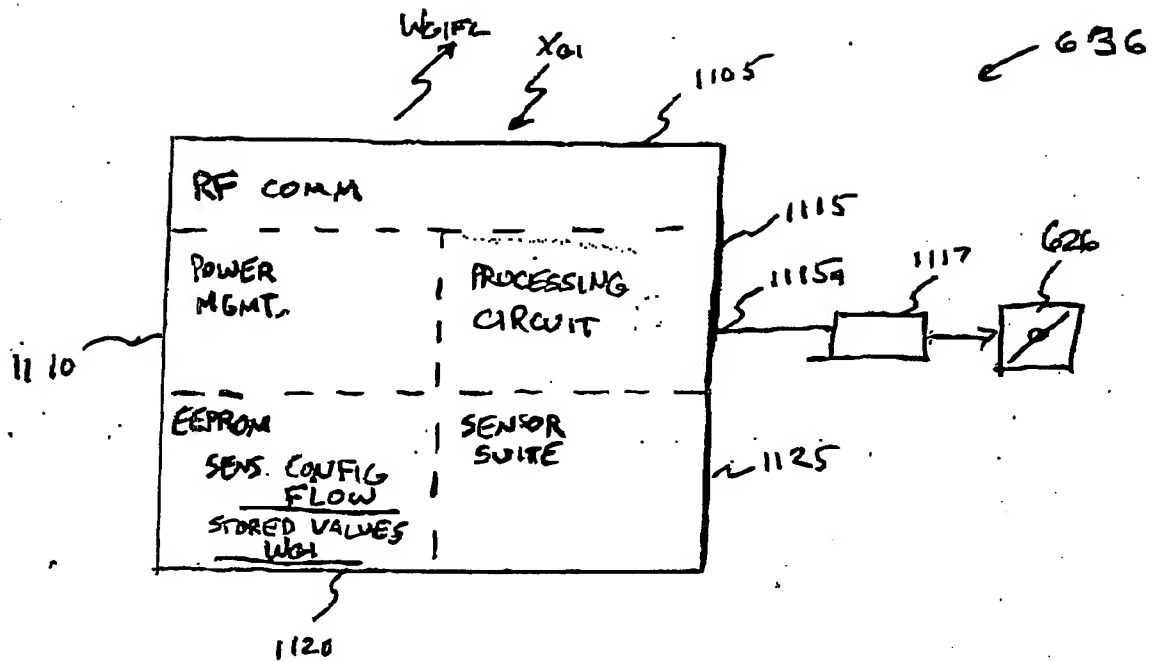 WGIFL
XGI
636
1105
RF COMM
1115
POWER
MGMT.
PROCESSING
CIRCUIT
1115a
1117
626
1110
EEPROM
SENS. CONFIG
FLOW
STORED VALUES
WGI
SENSOR
SUITE
1125
1120